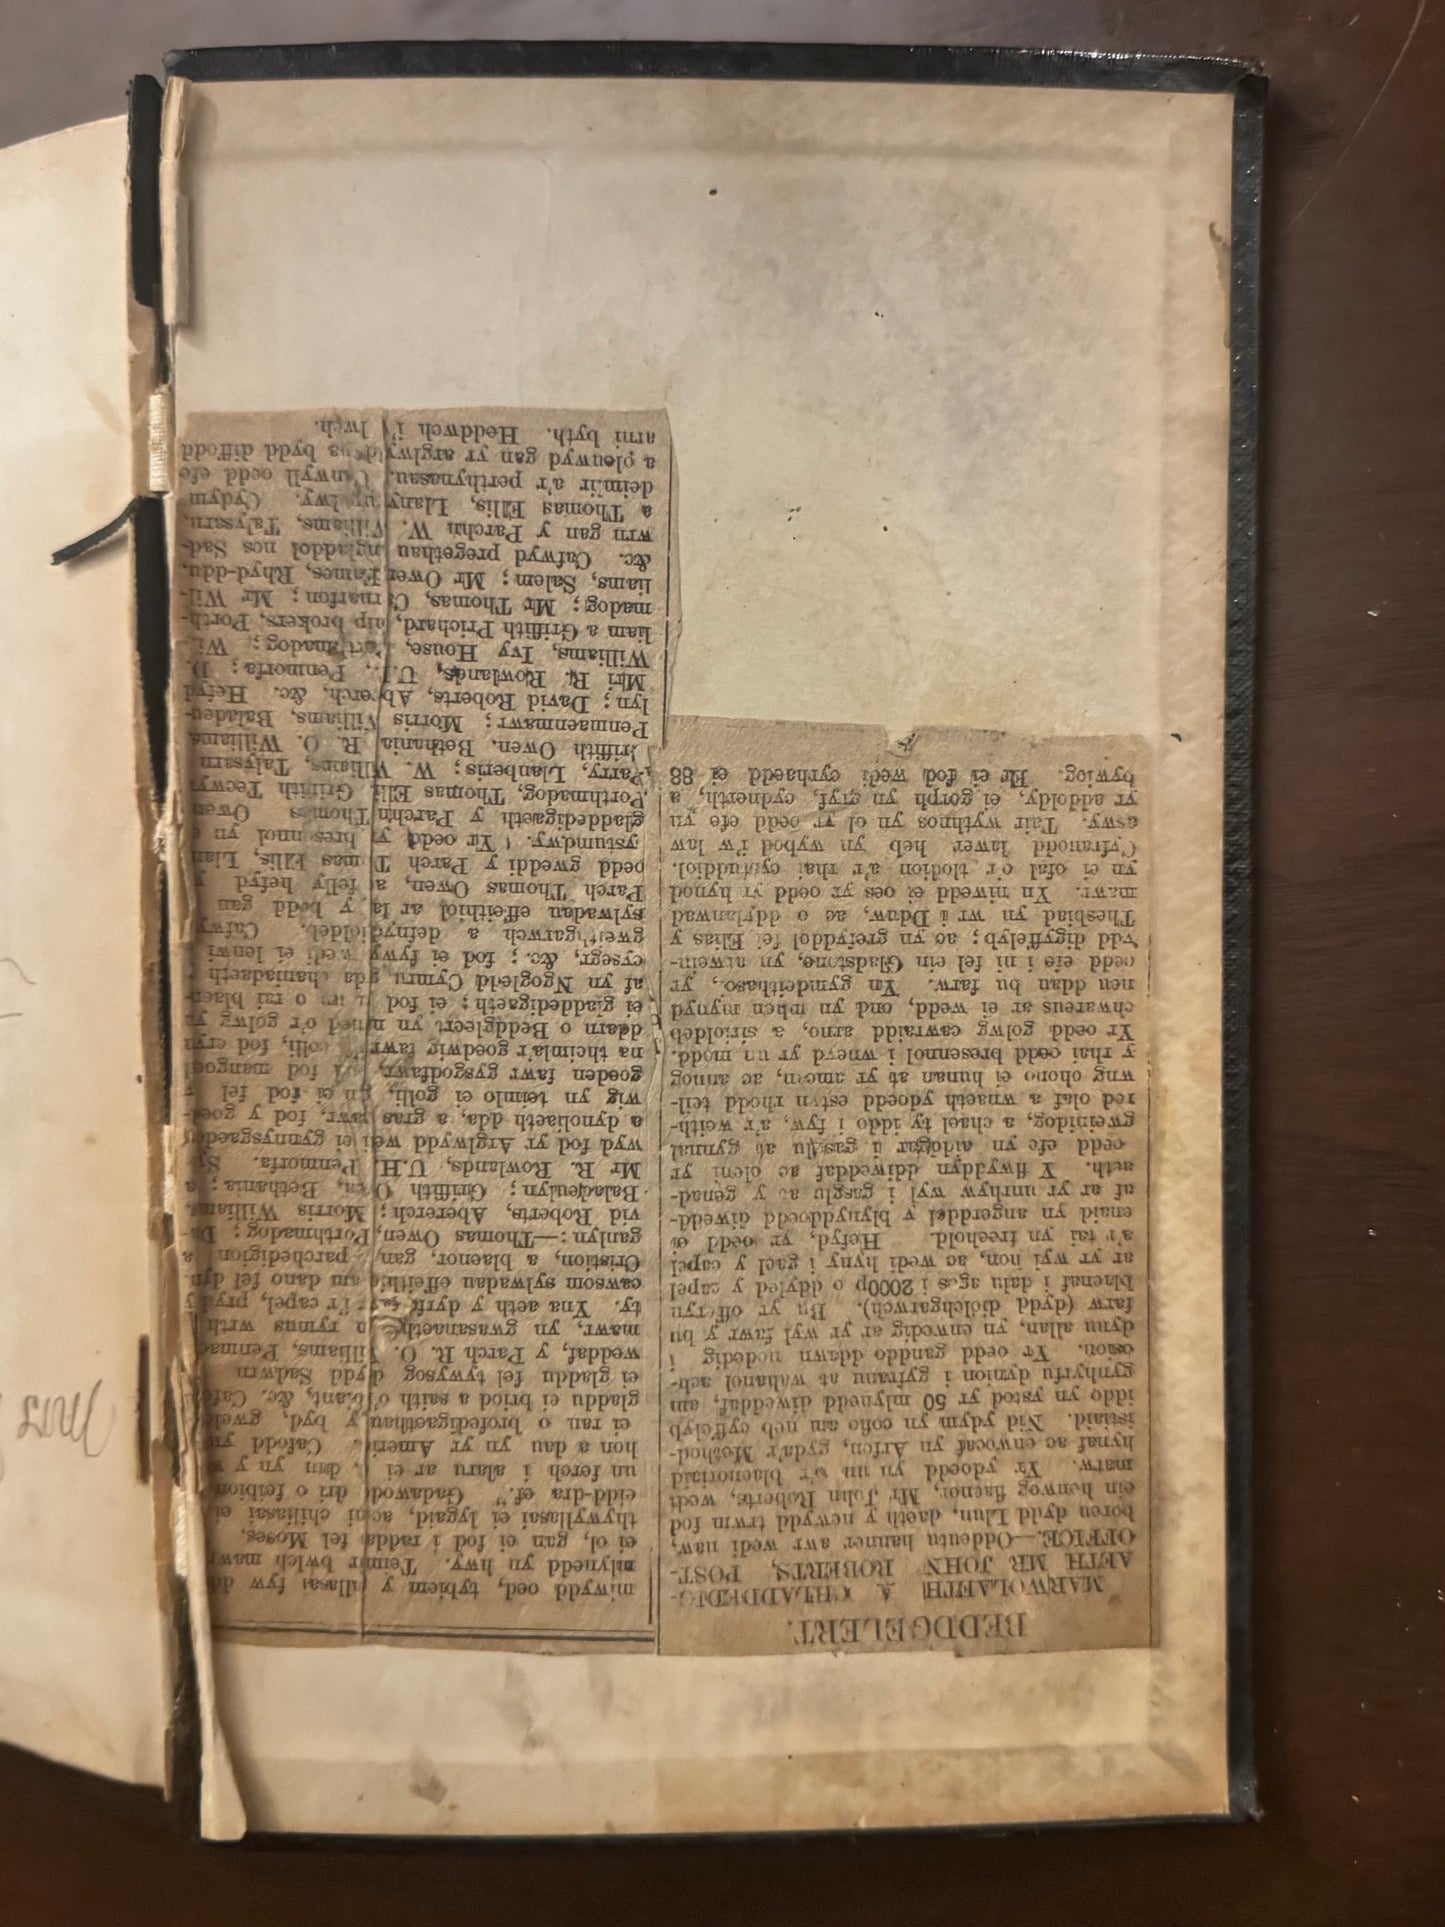 BEDDGELERT.
MARWOLAETH A CHLADDEDIG-
AETH MR JOHN ROBERTS, POST-
OFFICE.—Oddeutu hanner awr wedi naw,
boreu dydd Llun, daeth y newydd trwm fod
ein henwog flaenor, Mr John Roberts, wedi
marw. Yr ydoedd yn un o'r blaenoriaid
hynaf ac enwocaf yn Arfon, gyda'r Method-
istiaid. Nid ydym yn cofio am neb cyffelyb
iddo yn ystod yr 50 mlynedd diweddaf, am
gynhyrfu dynion i gyfranu at wahanol ach-
osion. Yr oedd ganddo ddawn nodedig i
dynu allan, yn enwedig ar yr wyl fawr y bu
farw (dydd diolchgarwch). Bu yr offeryn
blaenaf i dalu agos i 2000p o ddyled y capel
ar yr wyl hon, ac wedi hyny i gael y capel
a'r tai yn freehold. Hefyd, yr oedd ei
enaid yn angerddol y blynyddoedd diwedd-
af ar yr unrhyw wyl i gasglu at y genad-
aeth. Y flwyddyn ddiweddaf ac eleni yr
oedd efe yn aidd gar i gasglu at gynnal
gweinidog, a chael ty iddo i fyw, a'r weith-
red olaf a wnaeth ydoedd estyn rhodd teil-
wng ohono ei hunan at yr amcan, ac annog
y rhai oedd bresennol i wneyd yr un modd.
Yr oedd golwg cawraidd arno, a sirioldeb
chwareus ar ei wedd, ond yn mhen mynyd
neu ddau bu farw. Yn gymdeithasol, yr
oedd efe i ni fel ein Gladstone, yn ntwein-
ydd digyffelyb; ac yn grefyddol fel Elias y
Thesbiad yn wr i Dduw, ac o ddylanwad
mawr. Yn niwedd ei oes yr oedd yr hynod
yn ei ofal o'r tlodion a'r rhai cystuddiol.
Cyfranodd lawer heb yn wybod i'w law
aswy. Tair wythnos yn ol yr oedd efe yn
yr addoldy, ei gorph yn gryf, cydnerth, a
bywiog. Er ei fod wedi cyrhaedd ei 88
mlwydd oed, tybiem y gallasai fyw
mlynedd yn hwy. Teimlir bwlch mawr
ei ol, gan ei fod i raddau fel Moses,
thywyllasai ei lygaid, ac ni chiliasai ei
eidd-dra ef." Gadawodd dri o feibion
un ferch i alaru ar ei dau yn y
hon a dau yn yr America. Cafodd yn
ei ran o brofedigaethau y byd, gwel
gladdu ei briod a saith o blant, &c. Caf
ei gladdu fel tywysog dydd Sadwrn
weddaf, y Parch R. O. Williams, Penmae
mawr, yn gwasanaethu yn rymus wrth
ty. Yna aeth y dyrfa fawr i'r capel, pryd y
cawsom sylwadau effeithiol am dano fel dyn,
Cristion, a blaenor, gan parchedigion a
ganlyn:—Thomas Owen, Porthmadog; Da-
vid Roberts, Abererch; Morris Williams,
Baladeulyn; Griffith Owen, Bethania; a
Mr R. Rowlands, U.H. Penmorfa. Sy
wyd fod yr Arglwydd wedi ei gynnysgaeddu
a dynoliaeth dda, a gras mawr, fod y goed-
wig yn teimlo ei golli, gan ei fod fel
goeden fawr gysgodfawr, fod mangoed
na theimla'r goedwig fawr golli, fod cryn
ddarn o Beddgelert yn myned o'r golwg yn
ei gladdedigaeth; ei fod yn un o rai blaen-
af yn Ngogledd Cymru gyda chaniadaeth y
cysegr, &c.; fod ei fywyd wedi ei lenwi
gweithgarwch a defnyddioldeb. Cafwyd
sylwadau effeithiol ar lan y bedd gan
Parch Thomas Owen, a felly hefyd y
oedd gweddi y Parch Thomas Ellis, Llan
ystumdwy. Yr oedd yn bresennol yn
gladdedigaeth y Parchn Thomas Owen
Porthmadog, Thomas Ellis Griffith Tecwyn
Parry, Llanberis; W. Williams, Talysarn
Griffith Owen, Bethania R. O. Williams,
Penmaenmawr; Morris Williams, Baladeu-
lyn; David Roberts, Abererch, &c. Hefyd
Mri R. Rowlands, U.H., Penmorfa; D.
Williams, Ivy House, Porthmadog; Wil-
liam a Griffith Prichard, ship brokers, Porth-
madog; Mr Thomas, Carnarfon; Mr Wil-
liams, Salem; Mr Owen Eames, Rhyd-ddu,
&c. Cafwyd pregethau angladdol nos Sad-
wrn gan y Parchn W. Williams, Talysarn,
a Thomas Ellis, Llanystumdwy. Cydym-
deimlir a'r perthynasau. Canwyll oedd efe
a oleuwyd gan yr arglwydd, na bydd diffodd
arni byth. Heddwch i'w lwch.